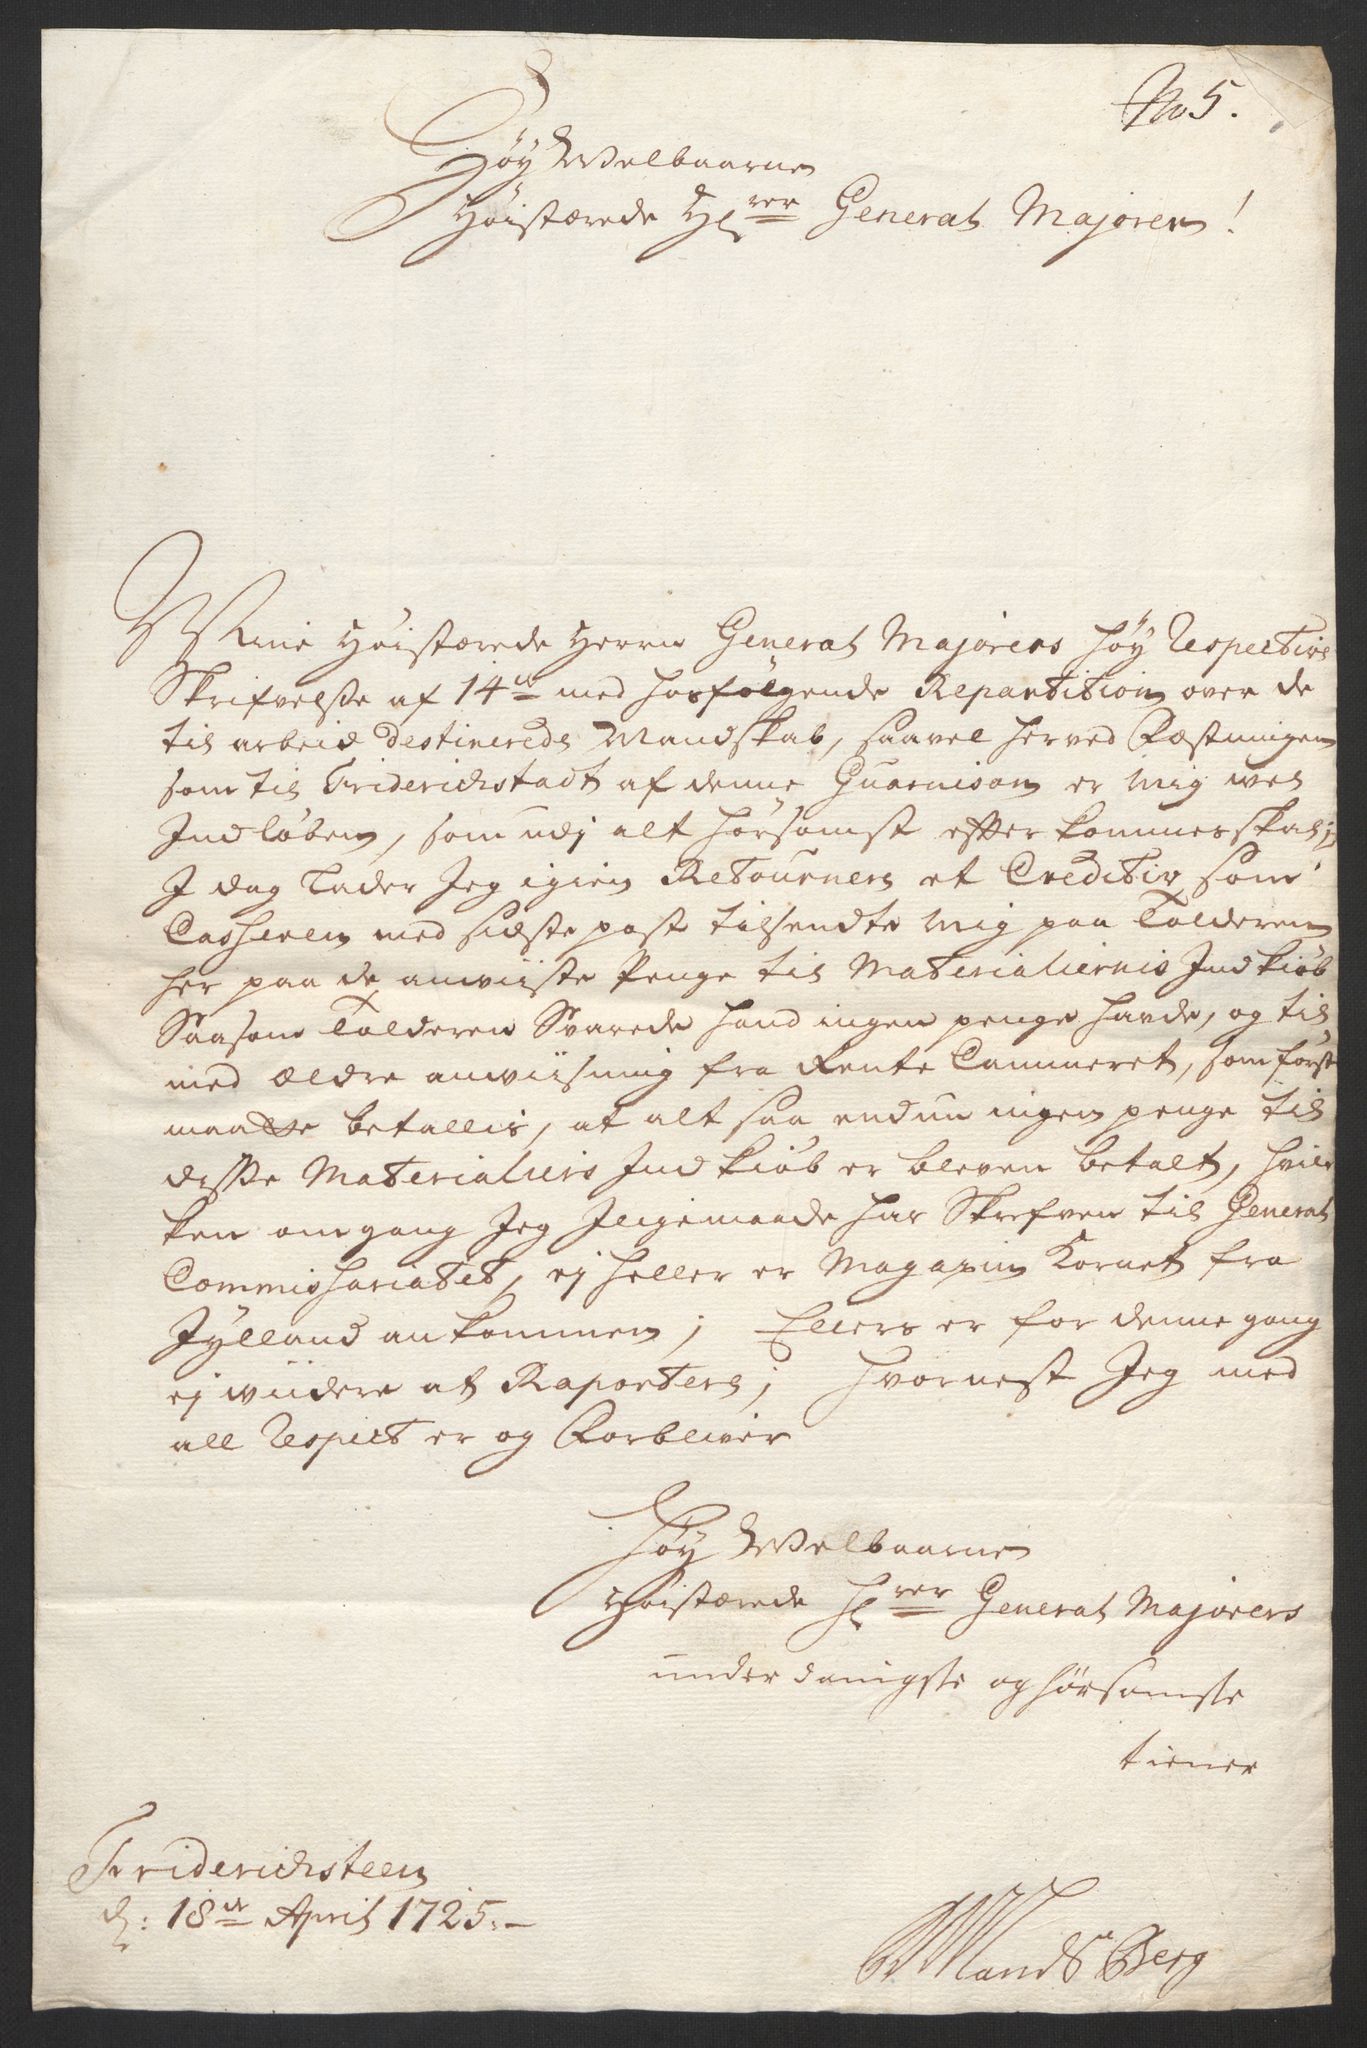 No 5.
Høy Welbaarne
Høistærede Hrer General Majoren!
Mine Høistærede Herrn General Majorens høy Respective
Skrifvelsse af 14de med hosfølgende Repartition over de
til arbeid destinerede Mandskab, saavel herved Fæstningen
som til Friderichstadt af denne Guarnison er mig vel
Indløben, som udj alt hørsomst efter kommes skal;
J dag lader Jeg igien Retournere et Creditiv, som
Casseren med sidste post tilsendte mig paa Tolderen
her paa de anviiste Penge til Materialiernis Indkiøb
Saasom Tolderen Svarede hand ingen penge hafde, og til
med ældre anviisning fra Rente Cammeret, som først
maatte betallis, at alt saa endnu ingen penge til
disse Materialiers Indkiøb er bleven betalt, hvil-
ken omgang Jeg Jligemaade har Skrefven til General
Commissariatet, ej heller er Magazin Kornet fra
Jylland ankommen; Ellers er for denne gang
ej widere at Raportere; hvornest Jeg med
all Respect er og Forbliver
Høy Welbaarne
Høistærede Hrer General Majorers
underdanigste og hørsomste
tiener
Friderichsteen
d: 18de April 1725.
Landsberg